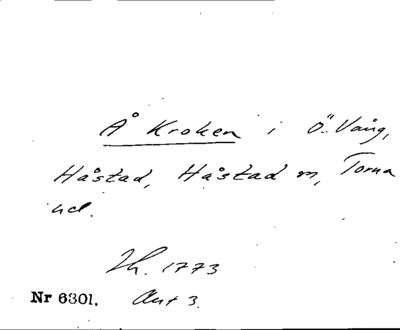 Å Kroken i Ö. Vång,
Håstad, Håstad m, Torna
hd.
Lh. 1773
Nr 6301. Akt 3.